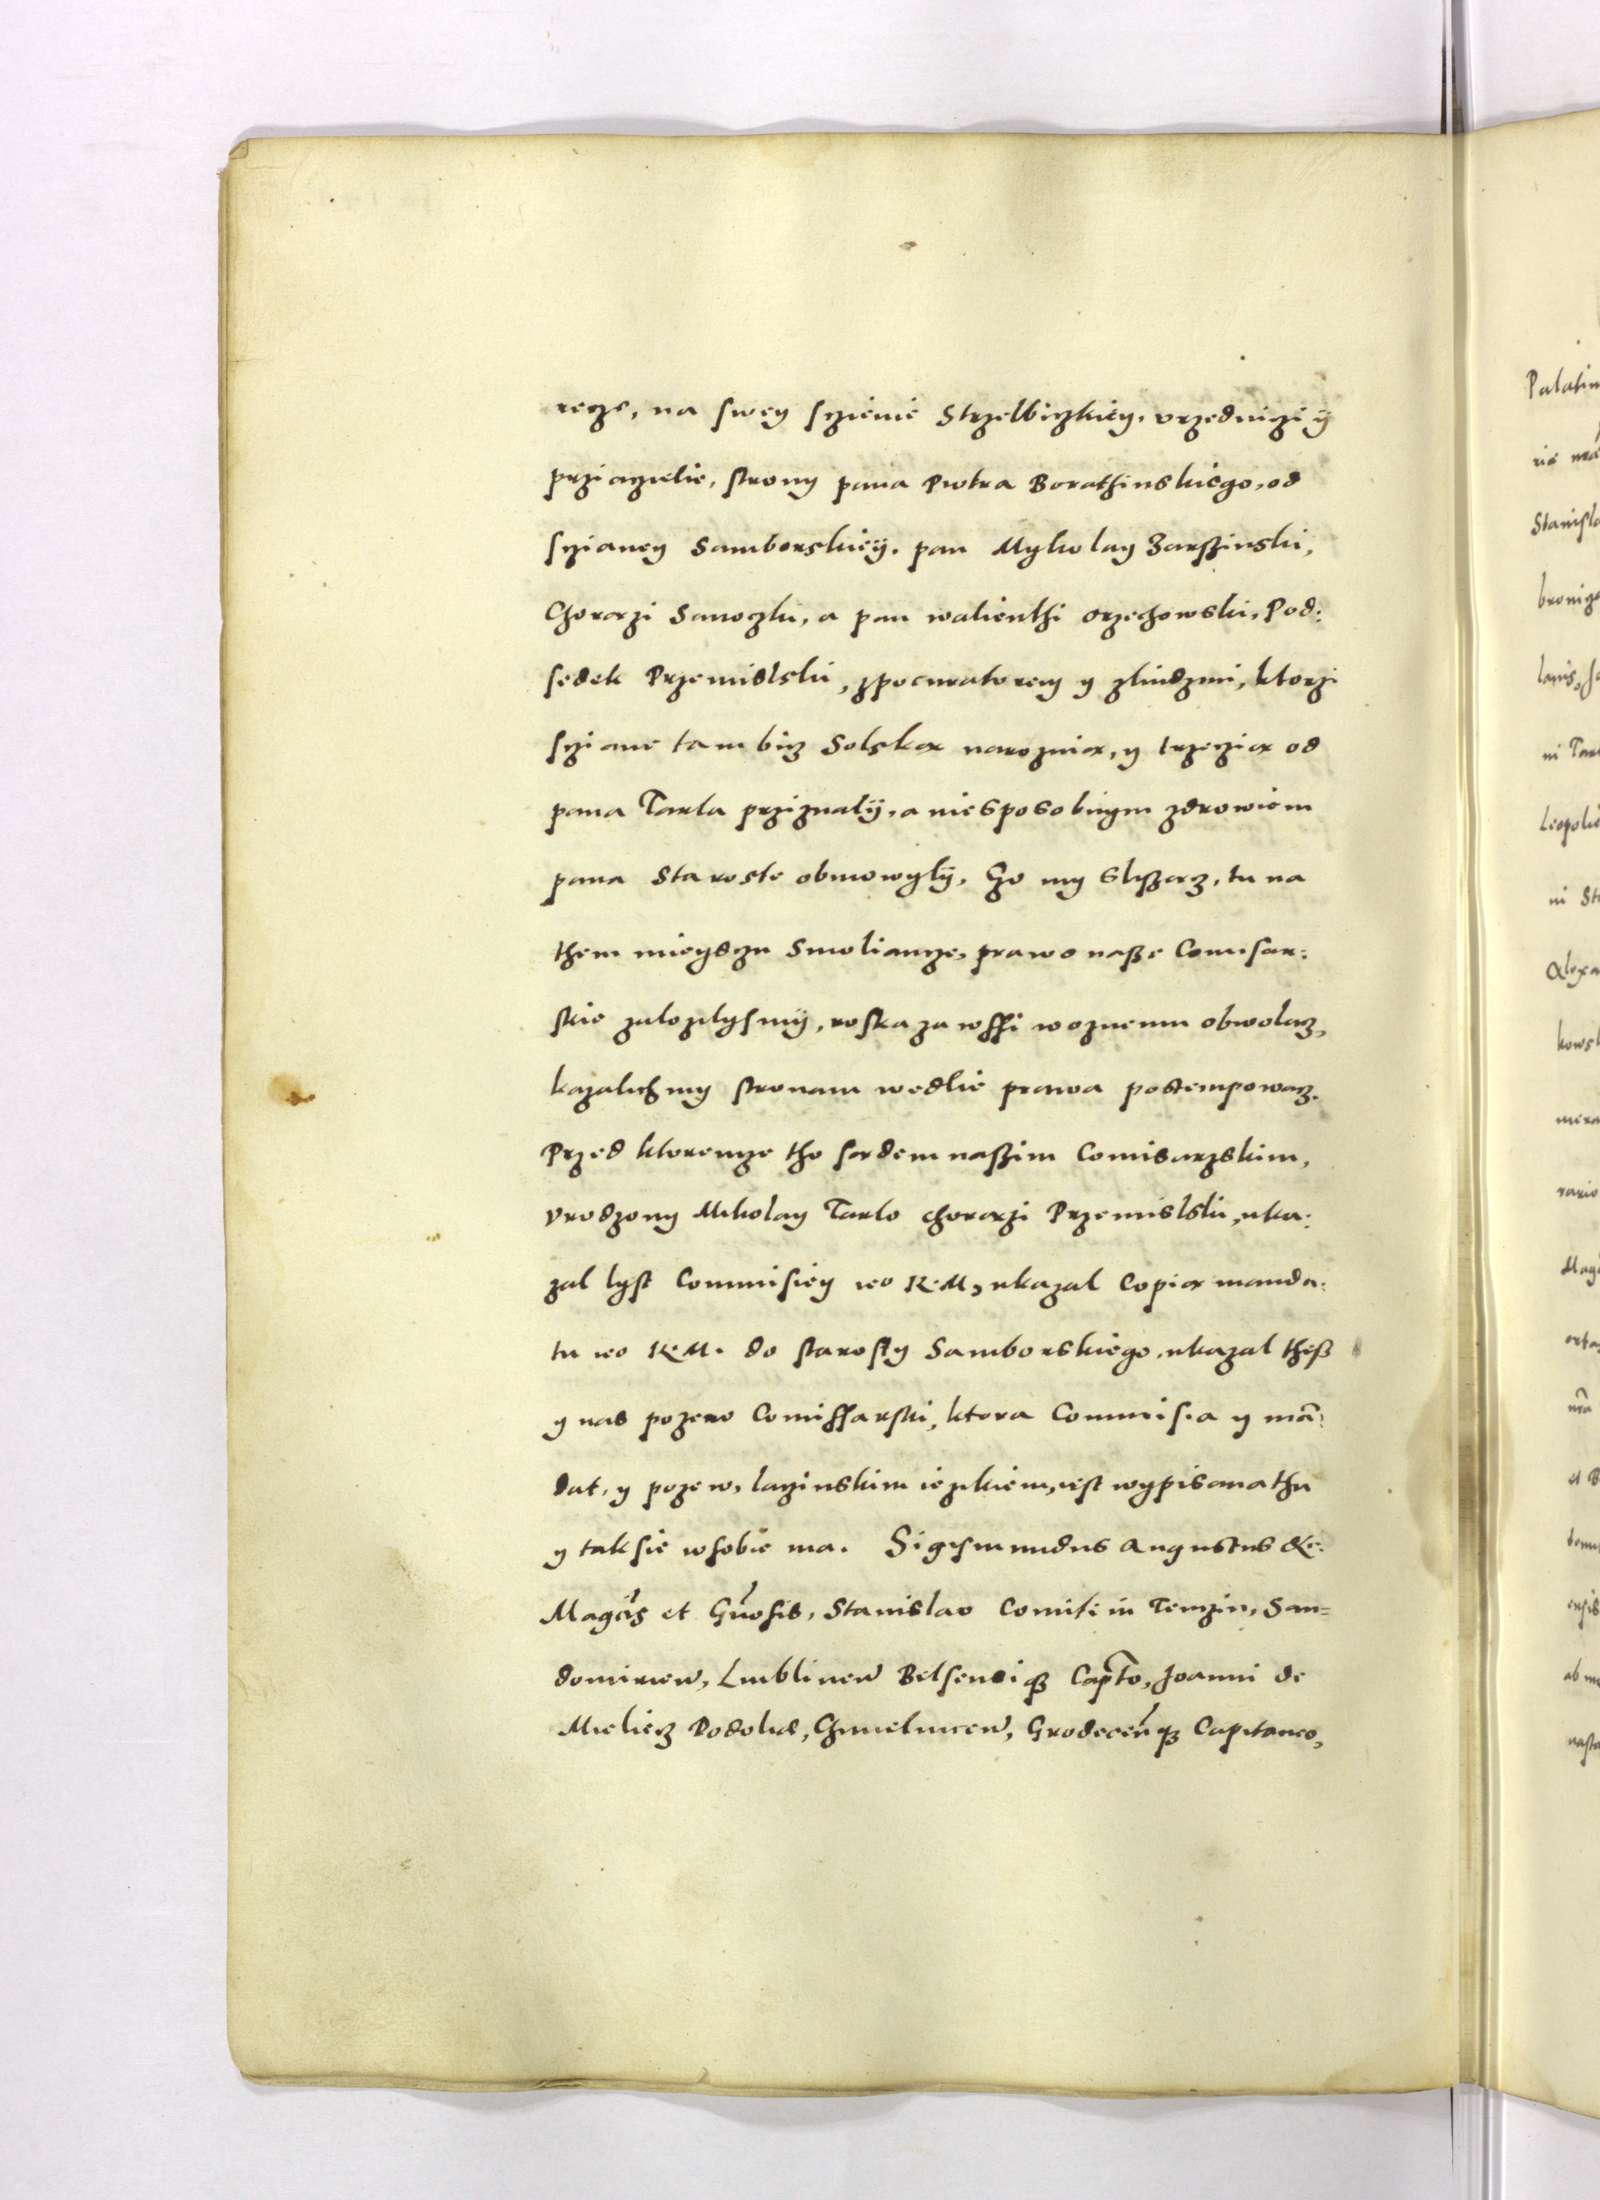 recze, na swey sczienie Strzelbiczkiey, vrzedniczi y
prziaczielie, strony pana Piotra Borathinskiego, od
scziany Samborskiey. pan Mykolay Zarszinski,
Chorązi Sanoczki, a pan walienthi Orzechowski, Pod:
sedek Przemislski, zpocuratorem y zliudzmi, ktorzi
scziane tam bicz Solską narozną, y trzeczią od
pana Tarla prziznaly, a niesposobnym zdrowiem
pana Staroste obmowyly. Czo my sliszącz, tu na
them mieysczu Smoliancze, prawo nasze Comisar:
skie zalozylysmy, roskazawssi woznemu obwolacz,
kazalichmy stronam wedlie prawa postempowacz.
Przed ktoremze tho sądem naszim Comisarzskim,
vrodzony Mikolay Tarlo chorązi Przemislski, uka:
zal lyst Commisiey ieo K. M, ukazal Copią manda:
tu ieo K. M. do starosty Samborskiego, ukazal thesz
y nas pozew Comissarski, ktora Commisia y mã:
dat, y pozew, laczinskim iezikiem, iest wypisana thu
y tak sie wsobie ma. Sigismundus Augustus &c.
Magcis et Gnosis, Stanislao Comiti in Tenczin, San=
domirien, Lublinen Belsensiq3 Capto, Joanni de
Mielicz Podoliæ, Chmielnicen, Grodecenq3 Capitaneo,
Palatin
Stanisla
ni Tar
Leopolie
ni St
Alexa
kows
mera
rario
ab m